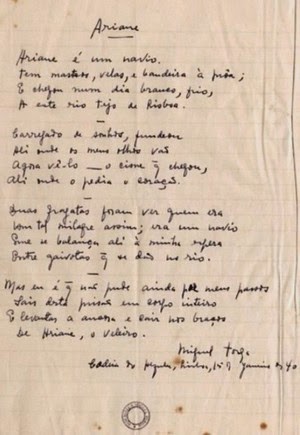 Ariane
Ariane é um navio.
Tem mastros, velas, e bandeira à prôa;
E chegou num dia branco, frio,
A este rio Tejo de Lisboa.
Carregado de sonho, fundeou
Ali onde os meus olhos vão
Agora vê-lo — o cisne q̃ chegou,
Ali onde o pedia o coração.
Duas fragatas foram ver quem era
Um tal milagre assim; era um navio
Que se balança ali à minha espera
Entre gaivotas q̃ se dão no rio.
Mas eu é q̃ não pude ainda por meus passos
Sair desta prisão em corpo inteiro
E levantar a ancora e cair nos braços
De Ariane, o veleiro.
Miguel Torga
Cadeia do Lisboa, Janeiro de 40